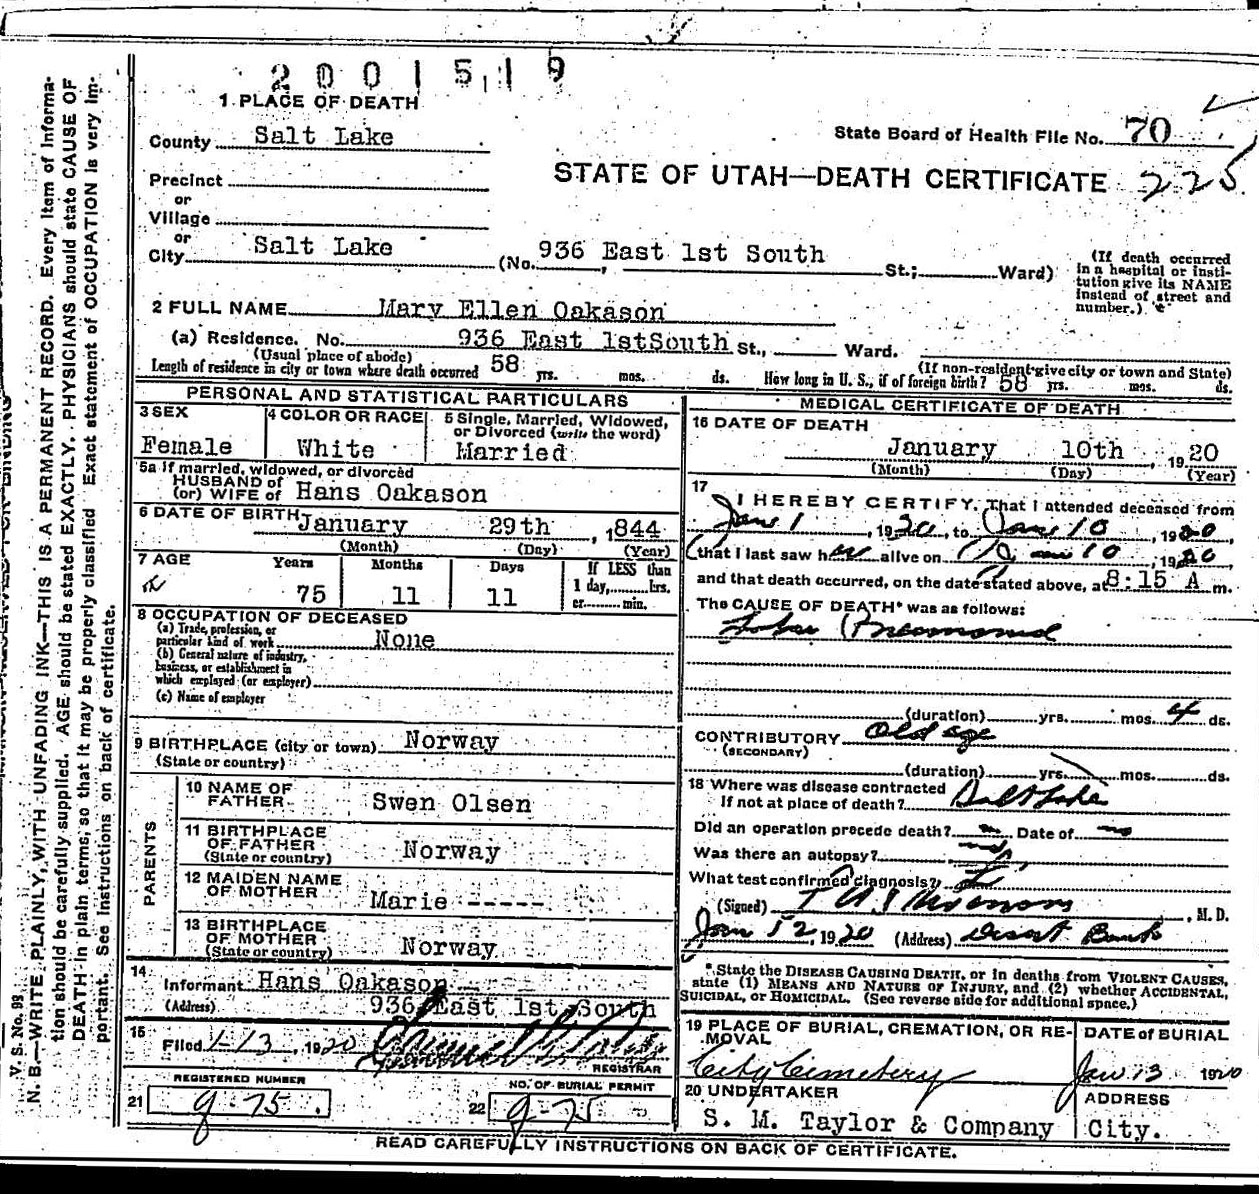 2001519
1 PLACE OF DEATH
County Salt Lake
State Board of Health File No. 70
Precinct
STATE OF UTAH—DEATH CERTIFICATE 225
or
Village
or
City Salt Lake (No. 936 East 1st South St.; Ward)
(If death occurred
in a hospital or insti-
tution give its NAME
instead of street and
number.)
2 FULL NAME Mary Ellen Oakason
(a) Residence. No. 936 East 1stSouth St., Ward.
(Usual place of abode)
(If non-resident give city or town and State)
Length of residence in city or town where death occurred 58 yrs. mos. ds. How long in U. S., if of foreign birth? 58 yrs. mos. ds.
PERSONAL AND STATISTICAL PARTICULARS
3 SEX
Female
4 COLOR OR RACE
White
5 Single, Married, Widowed,
or Divorced (write the word)
Married
5a If married, widowed, or divorced
HUSBAND of
(or) WIFE of Hans Oakason
6 DATE OF BIRTH January 29th, 1844
(Month) (Day) (Year)
7 AGE Years Months Days If LESS than
75 11 11 1 day, hrs.
or min.
8 OCCUPATION OF DECEASED
(a) Trade, profession, or
particular kind of work None
(b) General nature of industry,
business, or establishment in
which employed (or employer)
(c) Name of employer
9 BIRTHPLACE (city or town) Norway
(State or country)
PARENTS
10 NAME OF
FATHER Swen Olsen
11 BIRTHPLACE
OF FATHER Norway
(State or country)
12 MAIDEN NAME
OF MOTHER Marie -----
13 BIRTHPLACE
OF MOTHER
(State or country) Norway
14
Informant Hans Oakason
(Address) 936 East 1st South
15
Filed 1-13, 1920
REGISTRAR
REGISTERED NUMBER
21 g-75
NO. OF BURIAL PERMIT
22 g-75
MEDICAL CERTIFICATE OF DEATH
16 DATE OF DEATH
January 10th, 1920
(Month) (Day) (Year)
17
I HEREBY CERTIFY, That I attended deceased from
Jan 1, 1920, to Jan 10, 1920
that I last saw her alive on Jan 10, 1920
and that death occurred, on the date stated above, at 8:15 A m.
The CAUSE OF DEATH* was as follows:
Lobar Pneumonia
(duration) yrs. mos. 4 ds.
CONTRIBUTORY Old age
(SECONDARY)
(duration) yrs. mos. ds.
18 Where was disease contracted
If not at place of death? Salt Lake
Did an operation precede death? no Date of no
Was there an autopsy? no
What test confirmed diagnosis?
(Signed) , M. D.
Jan 12, 1920 (Address) Desert Bank
* State the DISEASE CAUSING DEATH, or in deaths from VIOLENT CAUSES,
state (1) MEANS AND NATURE OF INJURY, and (2) whether ACCIDENTAL,
SUICIDAL, or HOMICIDAL. (See reverse side for additional space.)
19 PLACE OF BURIAL, CREMATION, OR RE-
MOVAL
City Cemetery
DATE of BURIAL
Jan 13 1920
20 UNDERTAKER
S. M. Taylor & Company
ADDRESS
City.
READ CAREFULLY INSTRUCTIONS ON BACK OF CERTIFICATE.
V. S. No. 98
N. B.—WRITE PLAINLY, WITH UNFADING INK—THIS IS A PERMANENT RECORD. Every item of informa-
tion should be carefully supplied. AGE should be stated EXACTLY. PHYSICIANS should state CAUSE OF
DEATH in plain terms, so that it may be properly classified. Exact statement of OCCUPATION is very im-
portant. See instructions on back of certificate.